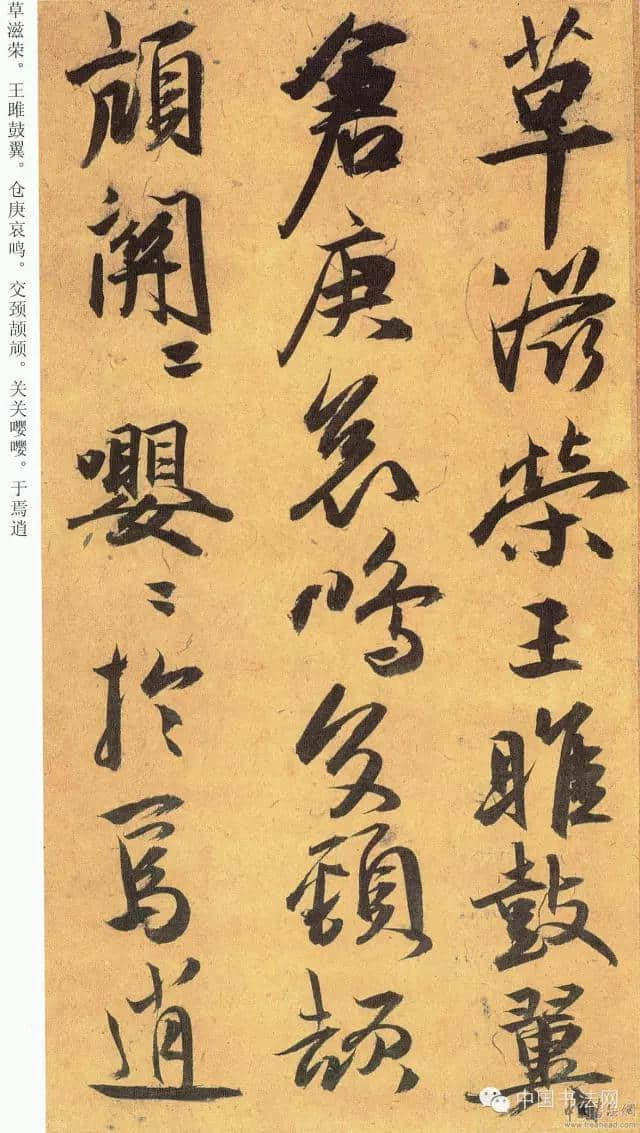 草滋榮王雎鼓翼
倉庚哀鳴交頸頡
頏關〻嚶〻於焉逍
草滋荣。王雎鼓翼。仓庚哀鸣。交颈颉颃。关关嘤嘤。于焉逍
中国书法网